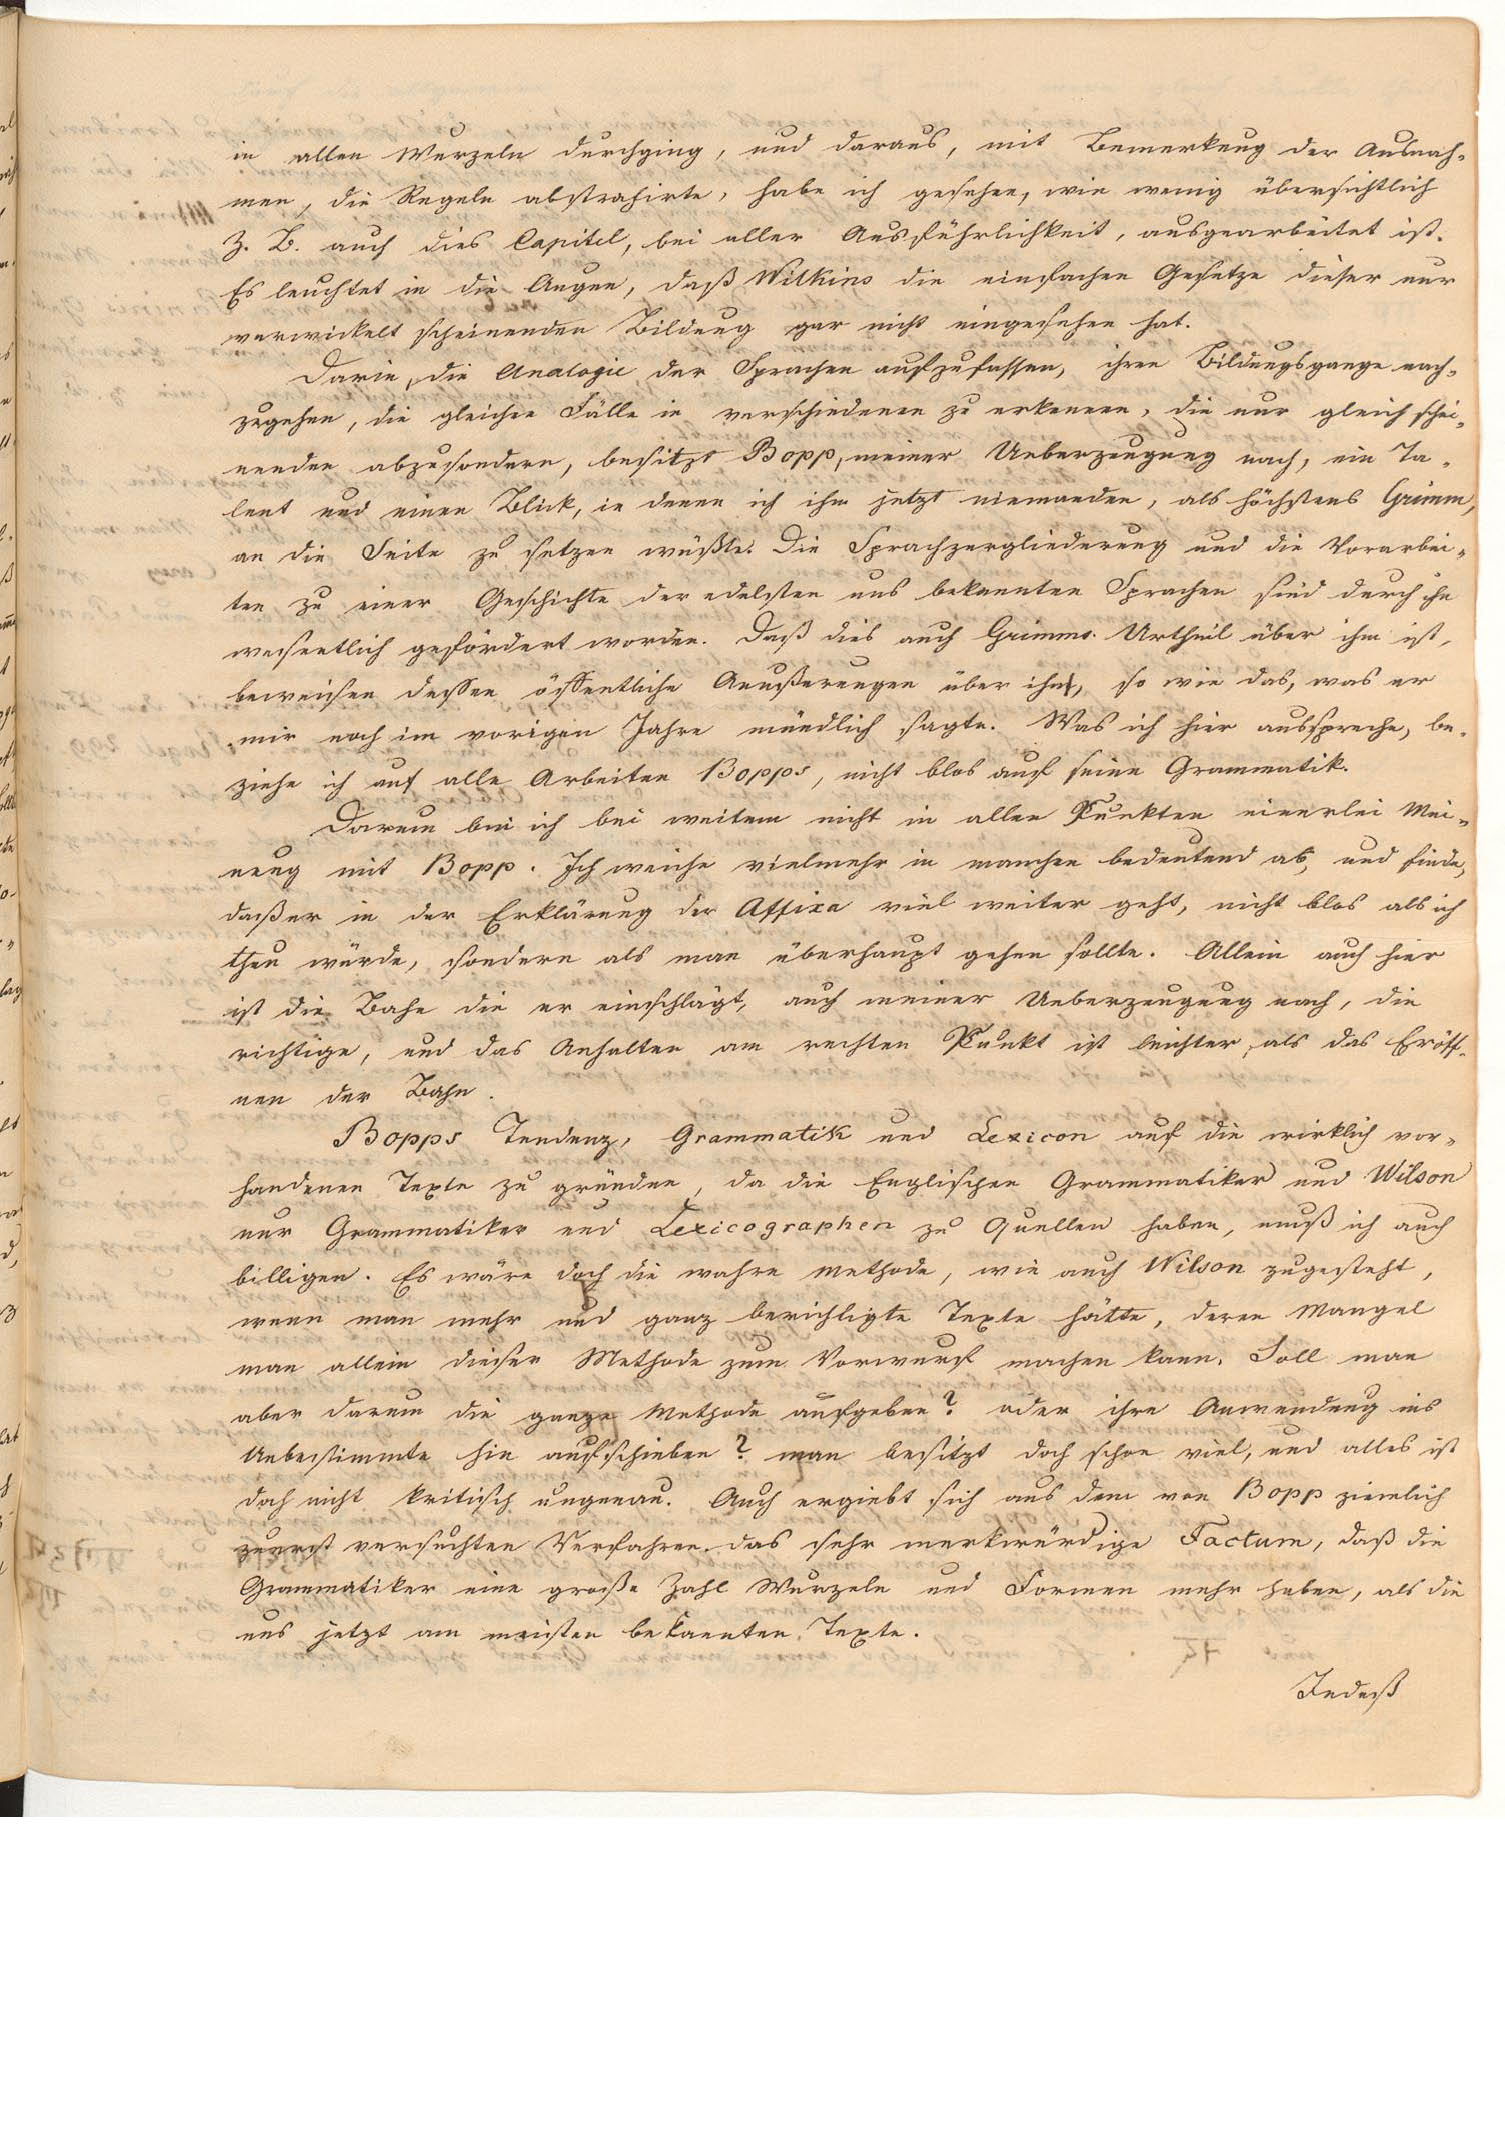 in allen Wurzeln durchging, und daraus, mit Bemerkung der Ausnah-
men, die Regeln abstrahirte, habe ich gesehen, wie wenig übersichtlich
Z. B. auch dies Capitel, bei aller Ausführlichkeit, ausgearbeitet ist.
Es leuchtet in die Augen, daß Wilkins die einfachen Gesetze dieser nur
verwickelt scheinenden Bildung gar nicht eingesehen hat.
Darin, die Analogie der Sprachen aufzufassen, ihren Bildungsgange nach-
zugehen, die gleichen Fälle in verschiedenen zu erkennen, die nur gleich schei-
nenden abzusondern, besitzt Bopp, meiner Ueberzeugung nach, ein Ta-
lent und einen Blick, in denen ich ihm jetzt niemanden, als höchstens Grimm,
an die Seite zu setzen wüßte. Die Sprachzergliederung und die Vorarbei-
ten zu einer Geschichte der edelsten uns bekannten Sprachen sind durch ihn
wesentlich gefördert worden. Daß dies auch Grimms Urtheil über ihn ist,
beweisen dessen öffentliche Aeußerungen über ihn, so wie das, was er
mir noch im vorigen Jahre mündlich sagte. Was ich hier ausspreche, be-
ziehe ich auf alle Arbeiten Bopps, nicht blos auf seine Grammatik.
Darum bin ich bei weitem nicht in allen Punkten einerlei Mei-
nung mit Bopp. Ich weiche vielmehr in manchen bedeutend ab, und finde,
daß er in der Erklärung der Affixa viel weiter geht, nicht blos als ich
thun würde, sondern als man überhaupt gehen sollte. Allein auch hier
ist die Bahn die er einschlägt, auch meiner Ueberzeugung nach, die
richtige, und das Anhalten am rechten Punkt ist leichter, als das Eröff-
nen der Bahn.
Bopps Tendenz, Grammatik und Lexicon auf die wirklich vor-
handenen Texte zu gründen, da die Englischen Grammatiker und Wilson
nur Grammatiker und Lexicographen zu Quellen haben, muß ich auch
billigen. Es wäre doch die wahre Methode, wie auch Wilson zugesteht,
wenn man mehr und ganz berichligte Texte hätte, deren Mangel
man allein dieser Methode zum Vorwurf machen kann. Soll man
aber darum die ganze Methode aufgeben? oder ihre Anwendung ins
Unbestimmte hin aufschieben? man besitzt doch schon viel, und alles ist
doch nicht kritisch ungenau. Auch ergiebt sich aus dem von Bopp ziemlich
zuerst versuchten Verfahren das sehr merkwürdige Factum, daß die
Grammatiker eine große Zahl Wurzeln und Formen mehr haben, als die
uns jetzt am meisten bekannten Texte.
Indeß